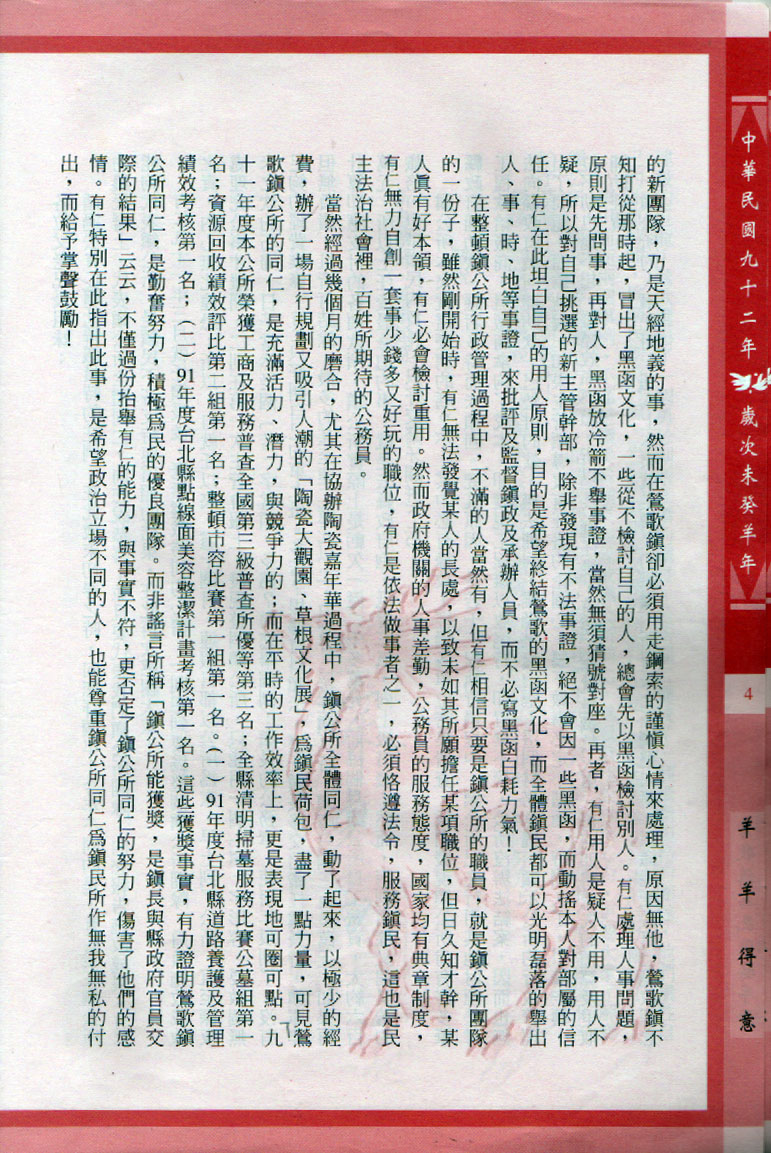 中華民國九十二年 歲次未癸羊年
4
羊羊得意
的新團隊，乃是天經地義的事，然而在鶯歌鎮卻必須用走鋼索的謹慎心情來處理，原因無他，鶯歌鎮不
知打從那時起，冒出了黑函文化，一些從不檢討自己的人，總會先以黑函檢討別人。有仁處理人事問題，
原則是先問事，再對人，黑函放冷箭不舉事證，當然無須猜號對座。再者，有仁用人是疑人不用，用人不
疑，所以對自己挑選的新主管幹部，除非發現有不法事證，絕不會因一些黑函，而動搖本人對部屬的信
任。有仁在此坦白自己的用人原則，目的是希望終結鶯歌的黑函文化，而全體鎮民都可以光明磊落的舉出
人、事、時、地等事證，來批評及監督鎮政及承辦人員，而不必寫黑函白耗力氣！
在整頓鎮公所行政管理過程中，不滿的人當然有，但有仁相信只要是鎮公所的職員，就是鎮公所團隊
的一份子，雖然剛開始時，有仁無法發覺某人的長處，以致未如其所願擔任某項職位，但日久知才幹，某
人眞有好本領，有仁必會檢討重用。然而政府機關的人事差勤，公務員的服務態度，國家均有典章制度，
有仁無力自創一套事少錢多又好玩的職位，有仁是依法做事者之一，必須恪遵法令，服務鎮民，這也是民
主法治社會裡，百姓所期待的公務員。
當然經過幾個月的磨合，尤其在協辦陶瓷嘉年華過程中，鎮公所全體同仁，動了起來，以極少的經
費，辦了一場自行規劃又吸引人潮的「陶瓷大觀園、草根文化展」，爲鎮民荷包，盡了一點力量，可見鶯
歌鎮公所的同仁，是充滿活力、潛力，與競爭力的；而在平時的工作效率上，更是表現地可圈可點。九
十一年度本公所榮獲工商及服務普查全國第三級普查所優等第三名；全縣清明掃墓服務比賽公墓組第一
名；資源回收績效評比第二組第一名；整頓市容比賽第一組第一名。（一）91年度台北縣道路養護及管理
績效考核第一名；（二）91年度台北縣點線面美容整潔計畫考核第一名。這些獲獎事實，有力證明鶯歌鎮
公所同仁，是勤奮努力，積極爲民的優良團隊。而非謠言所稱「鎮公所能獲獎，是鎮長與縣政府官員交
際的結果」云云，不僅過份抬舉有仁的能力，與事實不符，更否定了鎮公所同仁的努力，傷害了他們的感
情。有仁特別在此指出此事，是希望政治立場不同的人，也能尊重鎮公所同仁爲鎮民所作無我無私的付
出，而給予掌聲鼓勵！